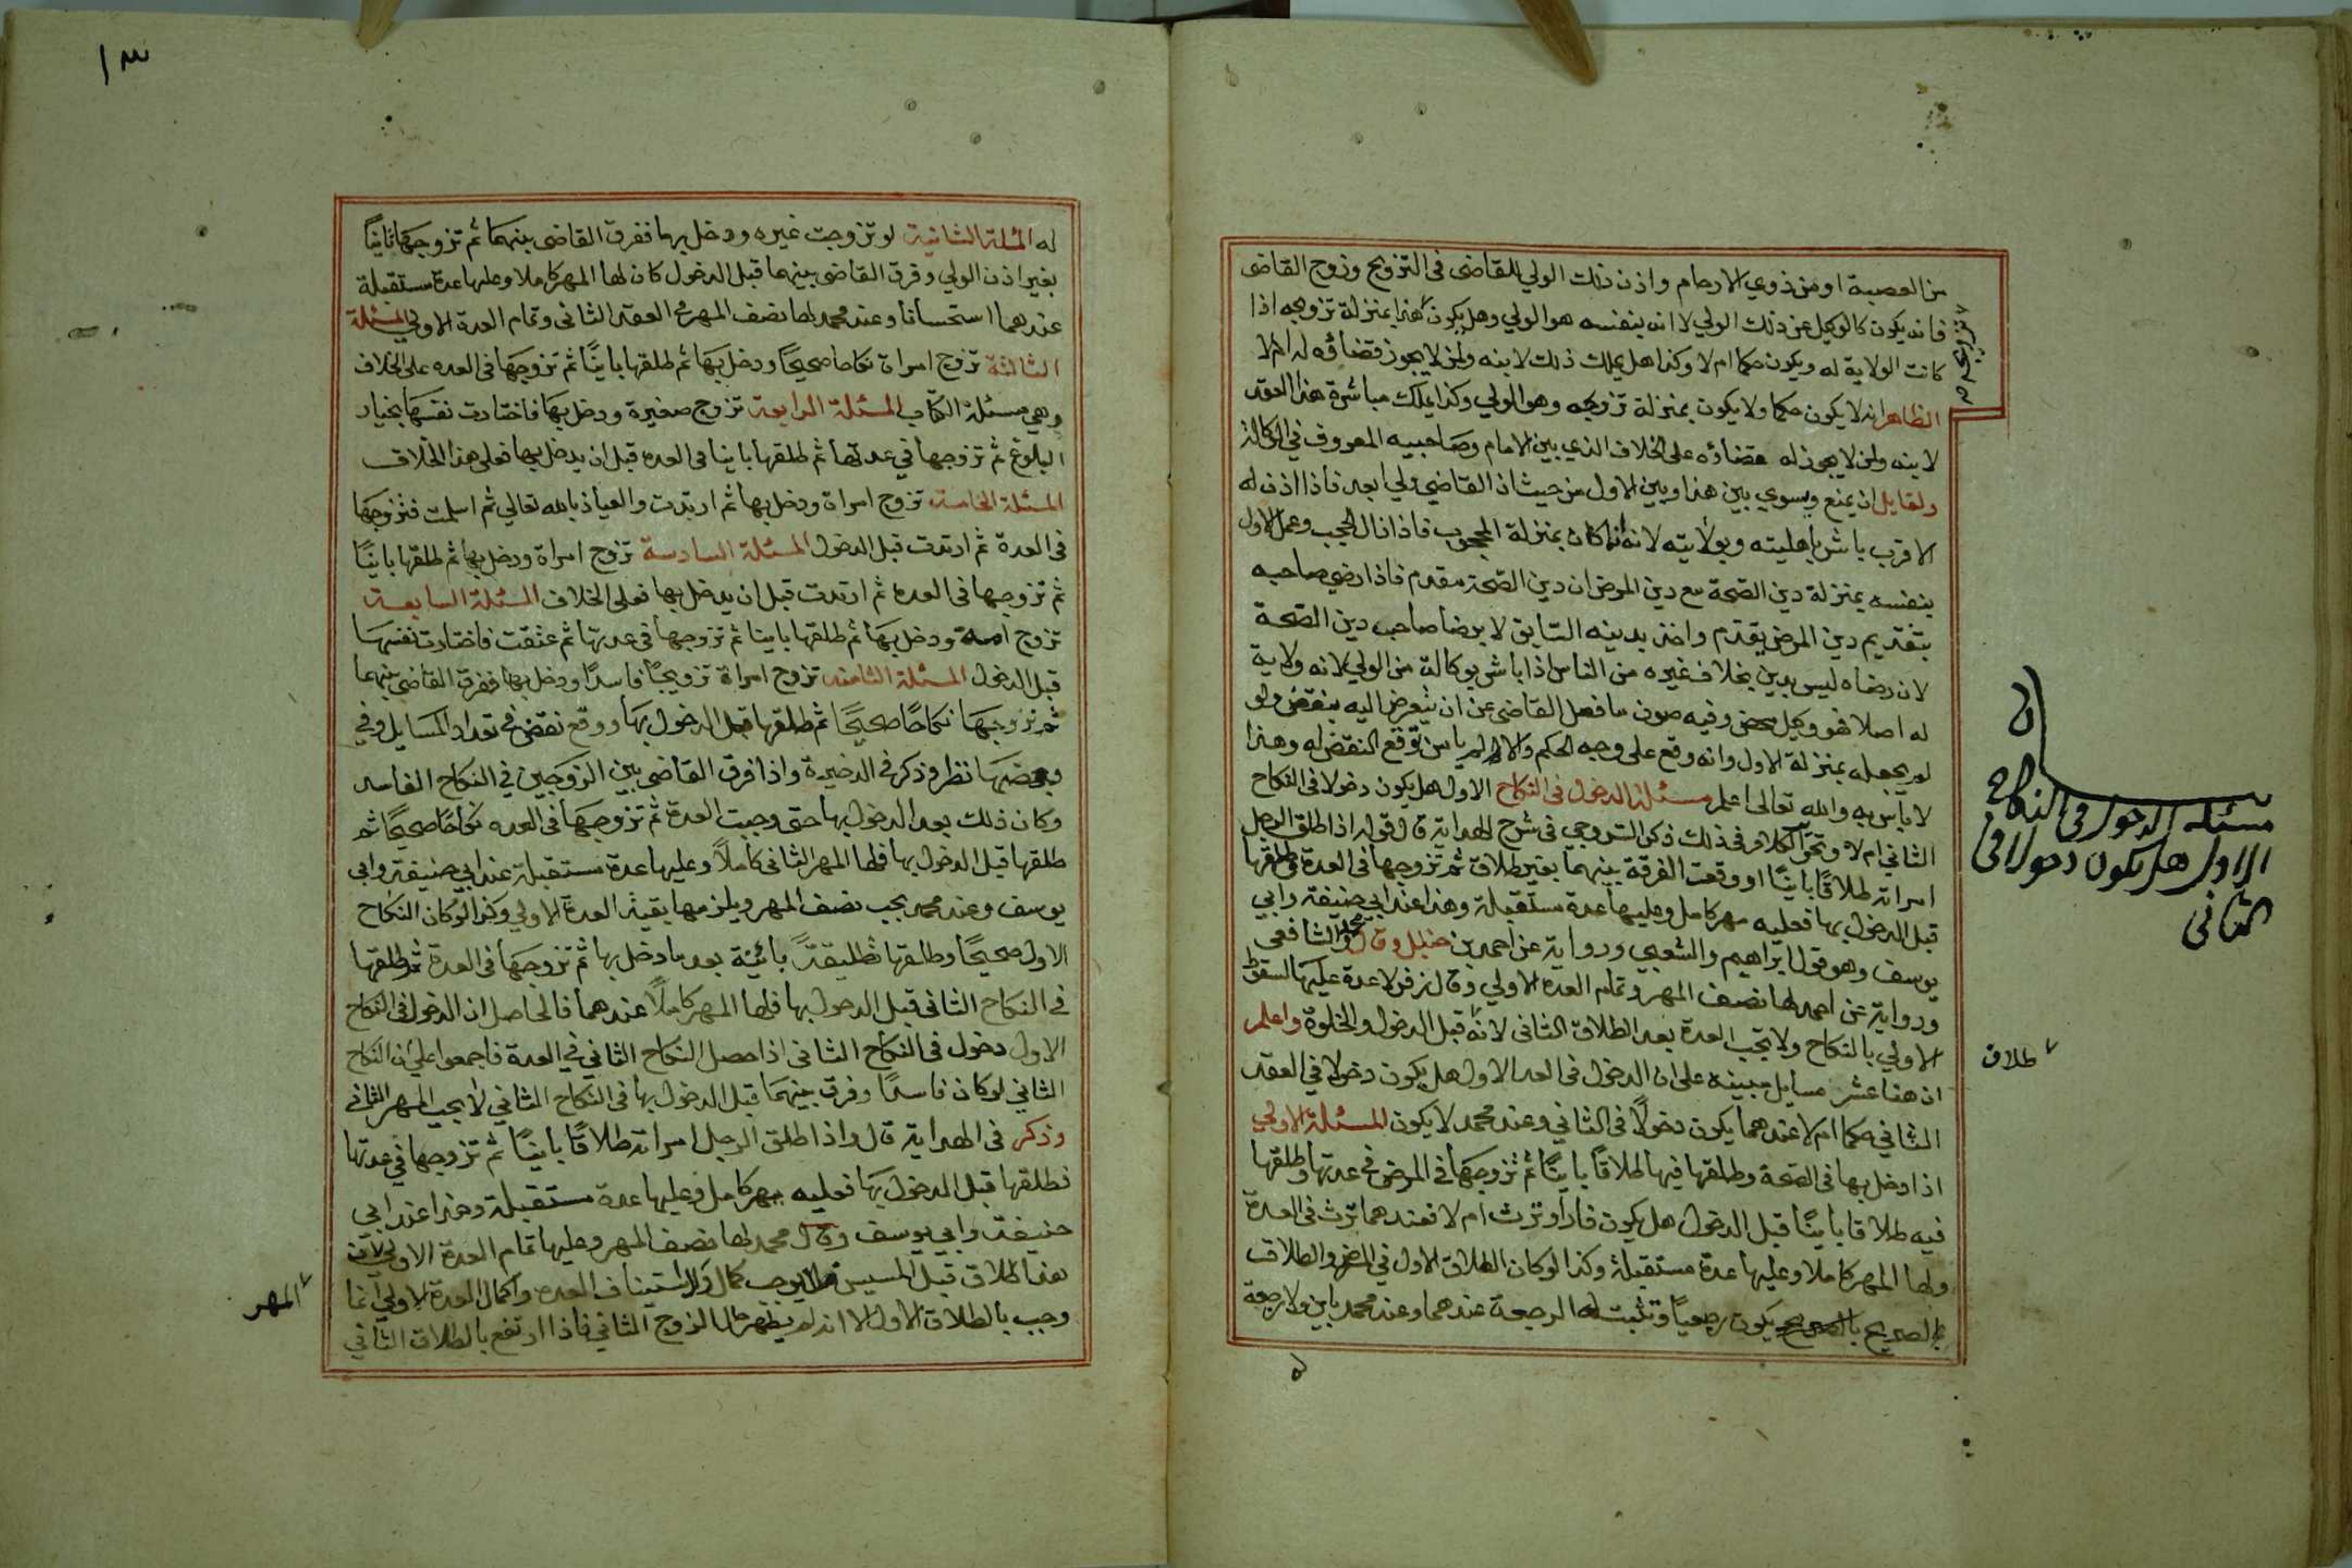 من العصبة او من ذوي الارحام واذن ذلك الولي للقاضى فى التزويج وزوج القاضى
فانه يكون كالوكيل عن ذلك الولي لا انه بنفسه هو الولي وهل يكون هذا بمنزلة تزويجه اذا
كانت الولاية له ويكون حكما ام لا وكذا هل يملك ذلك لابنه ولمن لا يجوز قضاؤه له ام لا
الظاهر انه لا يكون حكما ولا يكون بمنزلة تزوجه وهو الولي وكذا يملك مباشرة هذا العقد
لابنه ولمن لا يجوز له قضاؤه على الخلاف الذي بين الامام وصاحبيه المعروف في الوكالة
ولقايل ان يمنع ويسوي بين هذا وبين الاول من حيث ان القاضي ولي بعد فاذا اذن له
الاقرب باشر باهليته وبولايته لانه انما كان بمنزلة المحجوب فاذا زال الحجب وعمل الاول
بنفسه بمنزلة دين الصحة مع دين المرض ان دين الصحة مقدم فاذا رضي صاحبه
بتقديم دين المرض يقدم واخذ بدينه السابق لا برضا صاحب دين الصحة
لان رضاه ليس بدين بخلاف غيره من الناس اذا باشر بوكالة من الولي لانه ولاية
له اصلا فهو وكيل محض وفيه صون ما فعل القاضى عن ان يتعرض اليه بنقض ولو
لم يجعله بمنزلة الاول وانه وقع على وجه الحكم والا لم يامن توقع النقض له وهذا
لا باس به والله تعالى اعلم مسئلة الدخول فى النكاح الاول هل يكون دخولا فى النكاح
الثاني ام لا وتحرير الكلام فى ذلك ذكر السروجي فى شرح الهداية قال قوله اذا طلق الرجل
امراته طلاقا باينًا او وقعت الفرقة بينهما بغير طلاق ثم تزوجها فى العدة ثم طلقها
قبل الدخول بها فعليه مهر كامل وعليها عدة مستقبلة وهذا عند ابي حنيفة وابي
يوسف وهو قول ابراهيم والشعبي ورواية عن احمد بن حنبل وقال محمد والشافعى
ورواية عن احمد لها نصف المهر وتمام العده الاولي وقال زفر لا عدة عليها لسقوط
الاولي بالنكاح ولا تجب العدة بعد الطلاق الثانى لانه قبل الدخول والخلوة واعلم
ان هنا عشر مسايل مبينه على ان الدخول فى العد الاول هل يكون دخولا في العقد
الثاني حكما ام لا عندهما يكون دخولًا فى الثاني وعند محمد لا يكون المسئلة الاولي
اذا دخل بها فى الصحة وطلقها فيها طلاقًا باينًا ثم تزوجها في المرض في عدتها وطلقها
فيه طلاقا باينًا قبل الدخول هل يكون فارًا وترث ام لا فعندهما ترث فى العدة
ولها المهر كاملا وعليها عدة مستقبلة وكذا لو كان الطلاق الاول في المرض والطلاق
بالصريح يكون رجعيًا وتثبت له الرجعة عندهما وعند محمد باين ولا رجعة
له
مسئله الدخول فى النكاح
الاول هل يكون دخولا فى
الثانى
طلاق
١٣
له المسئلة الثانية لو تزوجت غيره ودخل بها ففرق القاضى بينهما ثم تزوجها ثانيًا
بغير اذن الولي وفرق القاضى بينهما قبل الدخول كان لها المهر كاملا وعليها عدة مستقبلة
عندهما استحسانا وعند محمد لها نصف المهر في العقد الثانى وتمام العدة الاولي المسئلة
الثالثة تزوج امراة نكاحا صحيحًا ودخل بها ثم طلقها باينًا ثم تزوجها فى العده على الخلاف
وهي مسئلة الكتاب المسئلة الرابعة تزوج صغيرة ودخل بها فاختارت نفسها بخيار
البلوغ ثم تزوجها في عدتها ثم طلقها باينا فى العده قبل ان يدخل بها فعلي هذا الخلاف
المسئلة الخامسة تزوج امراة ودخل بها ثم ارتدت والعياذ بالله تعالي ثم اسلمت فتزوجها
فى العدة ثم ارتدت قبل الدخول المسئلة السادسة تزوج امراة ودخل بها ثم طلقها باينًا
ثم تزوجها فى العده ثم ارتدت قبل ان يدخل بها فعلى الخلاف المسئلة السابعة
تزوج امة ودخل بها ثم طلقها باينا ثم تزوجها في عدتها ثم عتقت فاختارت نفسها
قبل الدخول المسئلة الثامنة تزوج امراة تزويجًا فاسدًا ودخل بها ففرق القاضى بينهما
ثم تزوجها نكاحًا صحيحًا ثم طلقها قبل الدخول بها ووقع نقض في تعداد المسايل وفي
بعضها نظر وذكر في الذخيرة واذا فرق القاضى بين الزوجين في النكاح الفاسد
وكان ذلك بعد الدخول بها حتى وجبت العدة ثم تزوجها فى العده نكاحًا صحيحًا ثم
طلقها قبل الدخول بها فلها المهر الثانى كاملًا وعليها عدة مستقبلة عند ابي حنيفة وابي
يوسف وعند محمد يجب نصف المهر ويلزمها بقية العدة الاولي وكذا لو كان النكاح
الاول صحيحًا وطلقها تطليقةً بائنة بعد ما دخل بها ثم تزوجها فى العدة ثم طلقها
في النكاح الثانى قبل الدخول بها فلها المهر كاملًا عندهما فالحاصل ان الدخول فى النكاح
الاول دخول فى النكاح الثانى اذا حصل النكاح الثاني في العدة فاجمعوا علي ان النكاح
الثاني لو كان فاسدًا وفرق بينهما قبل الدخول بها فى النكاح الثاني لا يجب المهر الثانى
وذكر فى الهداية قال واذا طلق الرجل امراته طلاقًا باينًا ثم تزوجها في عدتها
فطلقها قبل الدخول بها فعليه مهر كامل وعليها عدة مستقبلة وهذا عند ابي
حنيفة وابي يوسف وقال محمد لها نصف المهر وعليها تمام العدة الاولي لان
هذا طلاق قبل المسيس فلا يوجب كمال ولا استيناف العده واكمال العدة الاولي انما
وجب بالطلاق الاول الا انه لم يظهر حال الزوج الثاني فاذا ارتفع بالطلاق الثاني
المهر